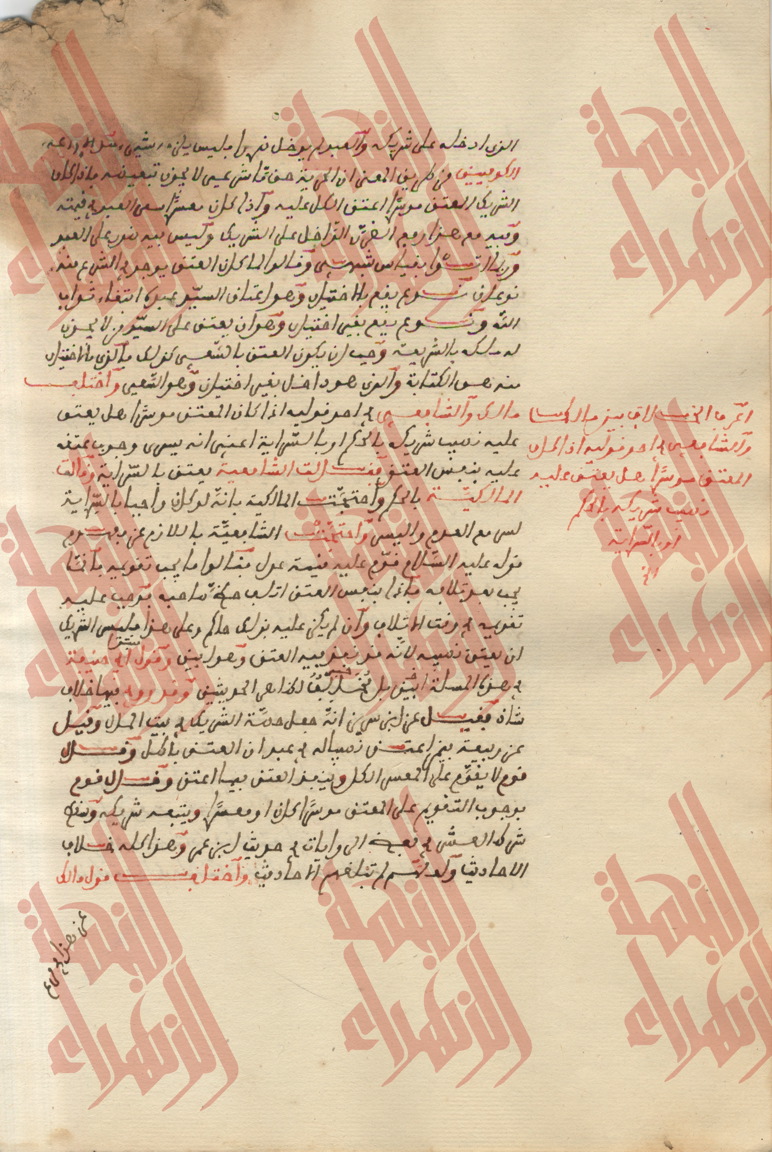 الذي ادخله على شريكه والعبد لم يدخل ضررا فليس يلزمه شيء
الكوفيين من طريق المعنى ان الحرية حق ما شرعي لا يجوز تبعيضه فاذا كان
الشريك المعتق موسرا اعتق الكل عليه وإذا كان معسرا سعى العبد في قيمته
وفيه مع هذا رفع الضرر الداخل على الشريك وليس فيه ضرر على العبد
وربما اتوا بقياس شبهي وقالوا لما كان العتق يوجد في الشرع منه
نوعان نوع يقع بالاختيار وهو اعتاق السيد عبده ابتغاء ثواب
الله ونوع يقع بغير اختيار وهو ان يعتق على السيد من لا يجوز
له ملكه بالشريعة وجب ان يكون العتق بالسعي كذلك فالذي بالاختيار
منه هو الكتابة والذي هو داخل بغير اختيار وهو السعي واختلف
مالك والشافعي في احد قوليه اذا كان المعتق موسرا هل يعتق
عليه نصيب شريكه بالحكم او بالسراية اعني انه يسري وجوب عتقه
عليه بنفس العتق فقالت الشافعية يعتق بالسراية وقالت
المالكية بالحكم واحتجت المالكية بانه لو كان واجبا بالسراية
لسرى مع العدم واليسر واحتجت الشافعية باللازم عن مفهوم
قوله عليه السلام قوم عليه قيمة عدل فقالوا ما يجب تقويمه فإنما
يجب بعد اتلافه فاذا بنفس العتق اتلف حظ صاحبه فوجب عليه
تقويمه في وقت الاتلاف وان لم يحكم عليه بذلك حاكم وعلى هذا فليس للشريك
ان يعتق نصيبه لانه قد نفذ فيه العتق وهو بين وقول ابي حنيفة
في هذه المسألة ابين بل مخالف لظاهر الحديثين وقد روي فيها خلاف
شاذ فقيل عن ابن سيرين انه جعل حصة الشريك في بيت المال وقيل
عن ربيعة فيمن اعتق نصيبا له في عبد ان العتق باطل وقال
قوم لا يقوم على المعسر الكل وينفذ العتق فيما اعتق وقال قوم
بوجوب التقويم على المعتق موسرا كان او معسرا ويتبعه شريكه وسقط
شركه العسر في بعض الروايات في حديث ابن عمر وهذا كله خلاف
الاحاديث ولعلهم لم تبلغهم الاحاديث واختلف قول مالك
اعرف الخلاف بين مالك
والشافعي في احد قوليه اذا كان
المعتق موسرا هل يعتق عليه
نصيب شريكه بالحكم
او بالسراية
الخ
من هذا في فرع